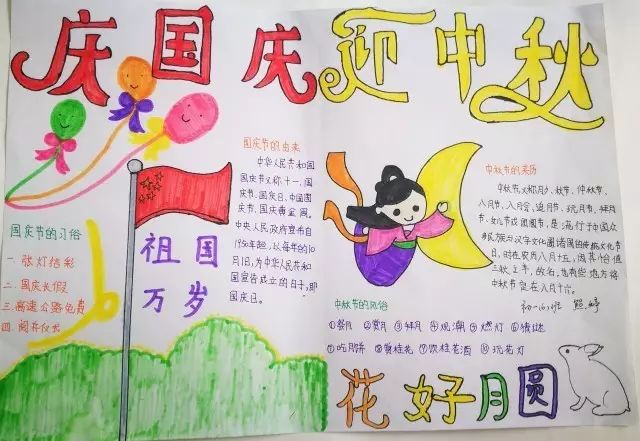 庆国庆 迎中秋
国庆节的由来
中华人民共和国
国庆节又称十一、国
庆节、国庆日、中国国
庆节、国庆黄金周。
中央人民政府宣布自
1950年起,以每年的10
月1日,为中华人民共和
国宣告成立的日子,即
国庆日。
祖国
万岁
国庆节的习俗
一、张灯结彩
二、国庆长假
三、高速公路免费
四、阅兵仪式
中秋节的来历
中秋节,又称月夕、秋节、仲秋节、
八月节、八月会、追月节、玩月节、拜月
节、女儿节或团圆节,是流行于中国众
多民族与汉字文化圈诸国的传统文化节
日,时在农历八月十五,因其恰值
三秋之半,故名,也有些地方将
中秋节定在八月十六。
中秋节的风俗
①祭月 ②赏月 ③拜月 ④观潮 ⑤燃灯 ⑥猜谜
⑦吃月饼 ⑧赏桂花 ⑨饮桂花酒 ⑩玩花灯
花好月圆